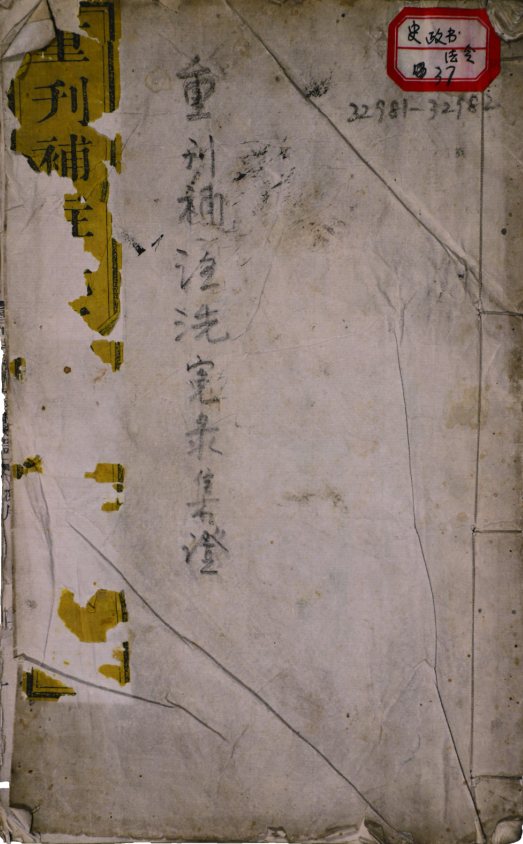 史政书
法令
37
32981-32982
重刊補註洗冤录集證
重刊補註